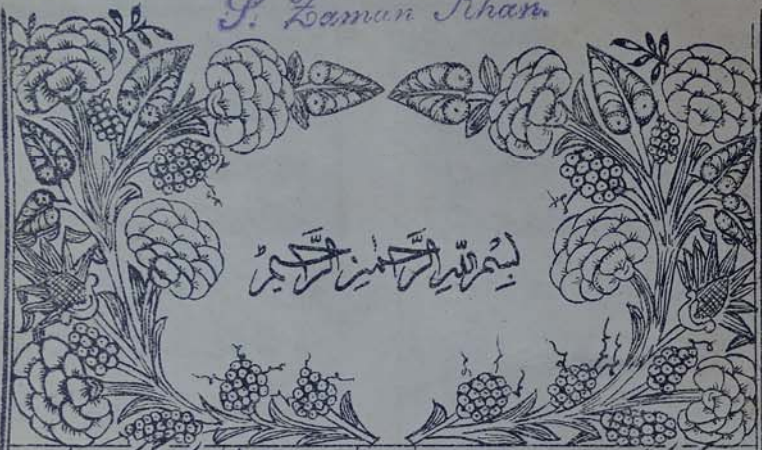 S. Zaman Khan.
بِسْمِ اللّٰہِ الرَّحْمٰنِ الرَّحِیْمِ